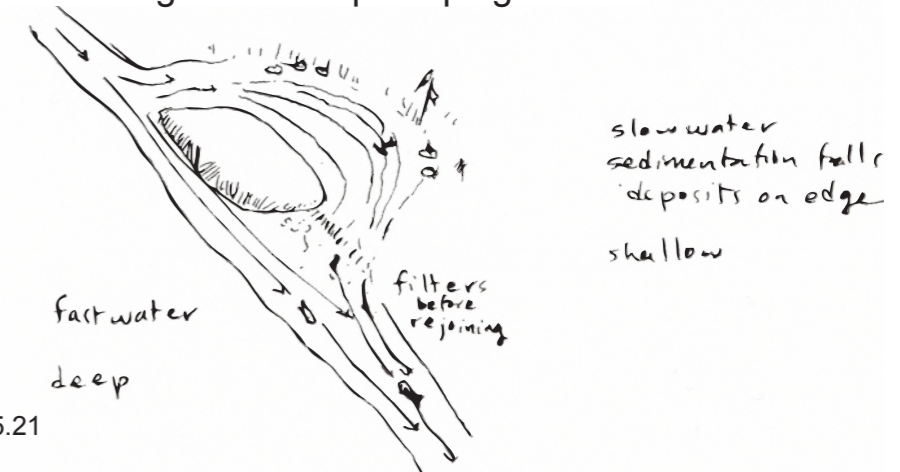 slow water
sedimentation falls
deposits on edge
shallow
filters
before
rejoining
fast water
deep
5.21